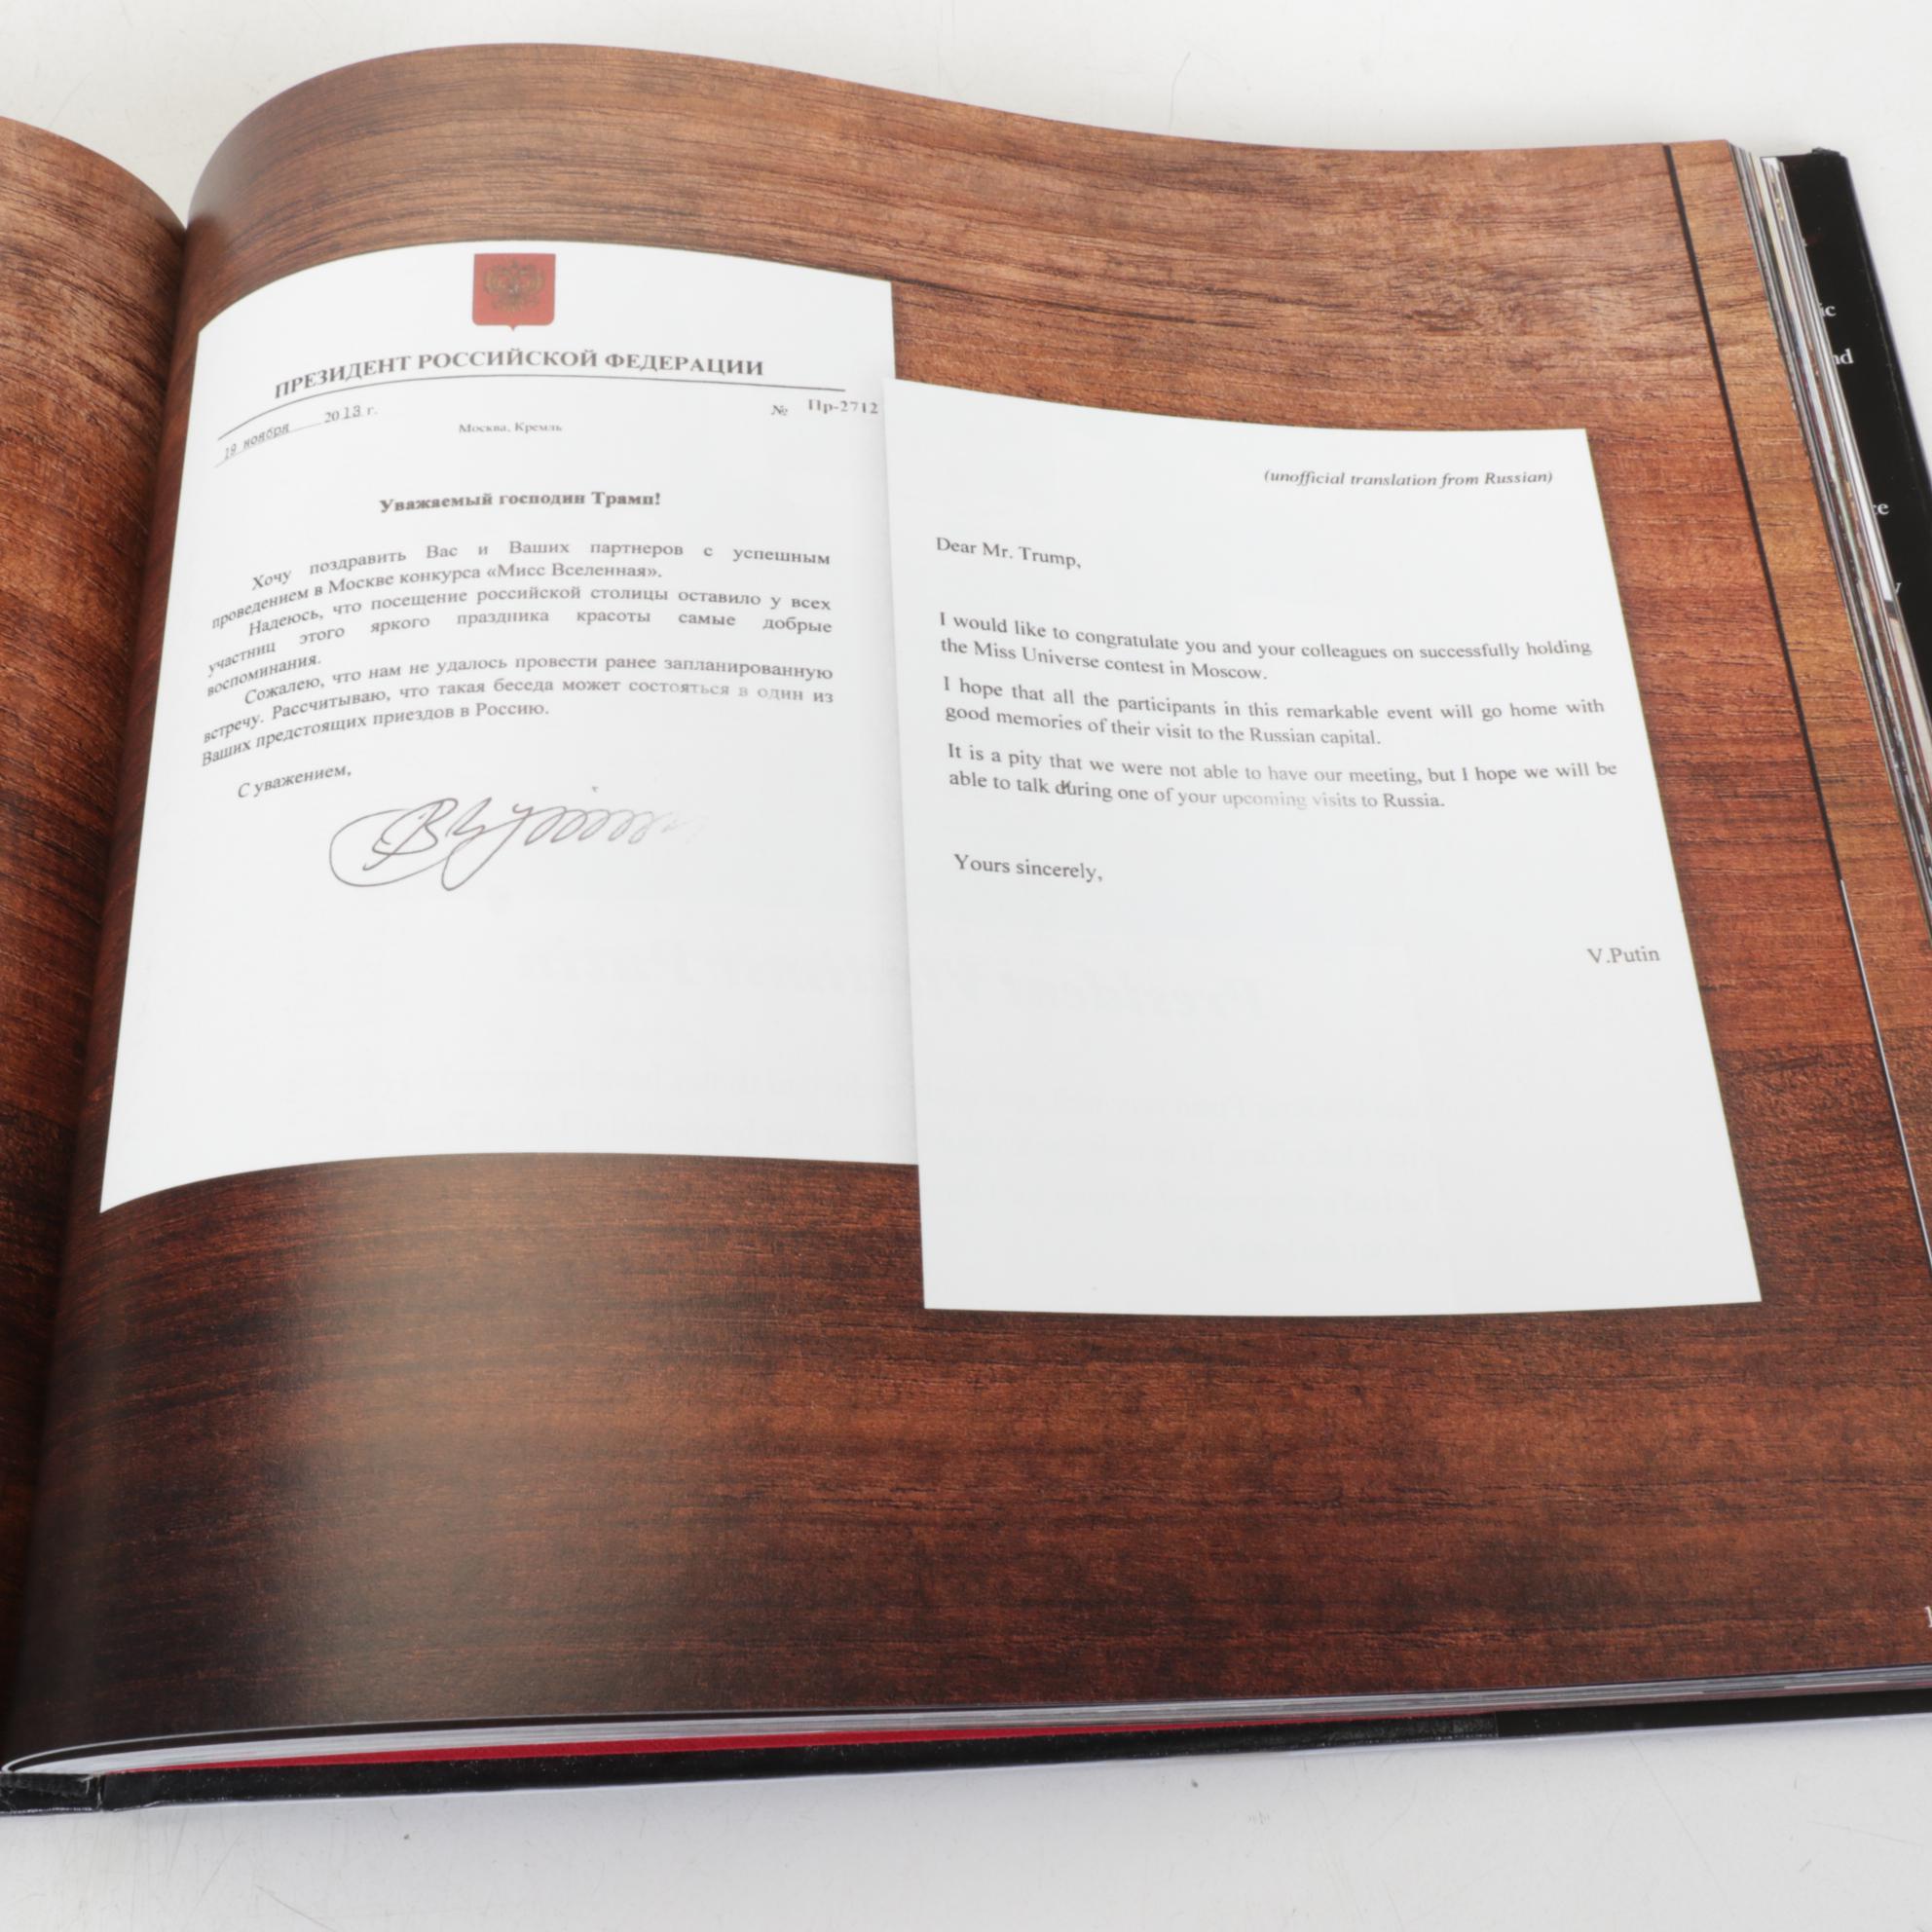 ПРЕЗИДЕНТ РОССИЙСКОЙ ФЕДЕРАЦИИ
19 ноября 2013 г.
№ Пр-2712
Москва, Кремль
Уважаемый господин Трамп!
Хочу поздравить Вас и Ваших партнеров с успешным
проведением в Москве конкурса «Мисс Вселенная».
Надеюсь, что посещение российской столицы оставило у всех
участниц этого яркого праздника красоты самые добрые
воспоминания.
Сожалею, что нам не удалось провести ранее запланированную
встречу. Рассчитываю, что такая беседа может состояться в один из
Ваших предстоящих приездов в Россию.
С уважением,
(unofficial translation from Russian)
Dear Mr. Trump,
I would like to congratulate you and your colleagues on successfully holding
the Miss Universe contest in Moscow.
I hope that all the participants in this remarkable event will go home with
good memories of their visit to the Russian capital.
It is a pity that we were not able to have our meeting, but I hope we will be
able to talk during one of your upcoming visits to Russia.
Yours sincerely,
V.Putin